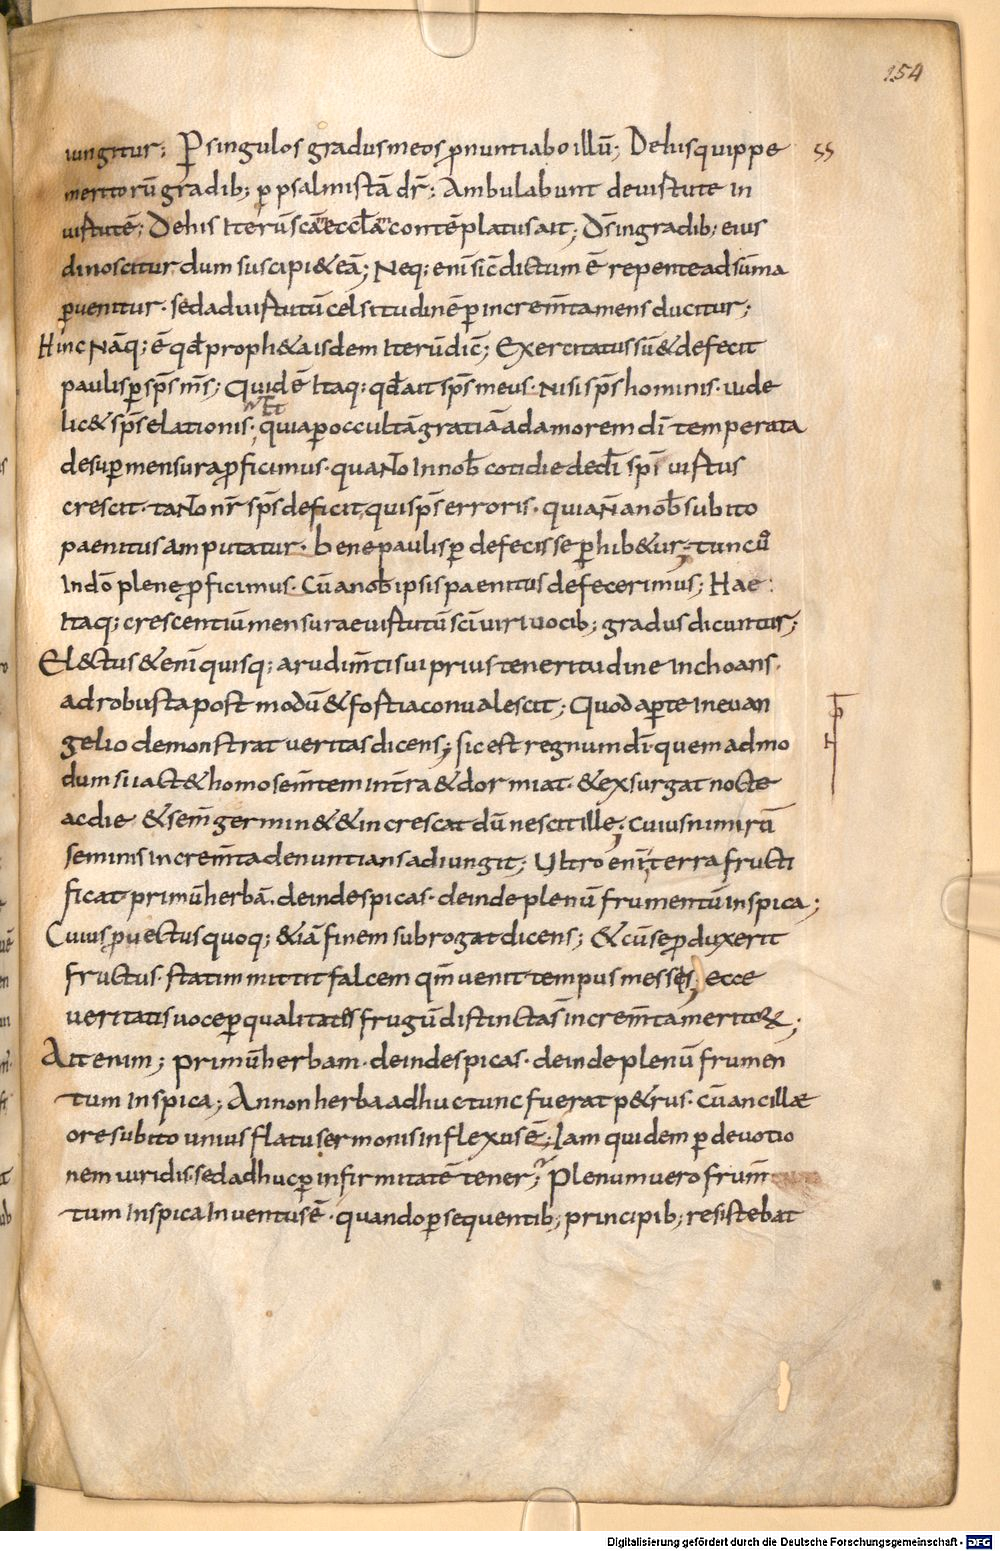 154
iungitur; P singulos gradus meos ꝓnuntiabo illū; De his quippe ss
meritorū gradib; ꝑ psalmistā dr̄; Ambulabunt de uirtute in
uirtutē; De his Iterū scām eccłam contēplatus ait; Ds̄ in gradib; eius
dinoscitur dum suscipi&eā; Neq; enī sic̄ dictum ē repente ad sūma
ꝑuenitur · sed ad uirtutū celsitudinē ꝑ increm̄ta mens ducitur;
Hinc Nāq; ē qđ proph&a isdem Iterū dic̄; Exercitatus sū & defecit
paulisꝑ sps̄ ms̄; Quid ē Itaq; qđ ait sps̄ meus · Nisi sps̄ hominis · uide
Et
lic& sps̄ elationis; quia ꝑ occultā gratiā ad amorem dī temperata
desuꝑ mensura ꝓficimus · quaNto In nob̄ cotidie de dī spū uirtus
crescit · taNto nr̄ sps̄ deficit, qui sps̄ erroris · quia N̄ a nob̄ subito
paenitus amputatur · bene paulisꝑ defecisse ꝑhib&ur; tunc ů
In dō plene ꝓficimus · Cū a nob̄ ipsis paenitus defecerimus; Hae
Itaq; crescentiū mensurae uirtutū scī uiri uocib; gradus dicuntur;
El&ctus & enī quisq; a rudim̄ti sui prius teneritudine Inchoans ·
ad robusta post modū & fortia conualescit; Quod aꝑte In euan
gelio demonstrat ueritas dicens; sic est regnum dī · quem admo
dum si iact& homo sem̄tem In t̄ra & dormiat · & exsurgat nocte
ac die & sem̄ germin& & increscat dū nescit ille; cuius nimirū
seminis increm̄ta denuntians adiungit; Ultro enī terra fructi
ficat · primū herbā · deinde spicas · deinde plenū frumentū in spica;
Cuius ꝓuectus quoq; & iā finem subrogat dicens; & cū se ꝓduxerit
fructus · statim mittit falcem qm̄ uenit tempus messes; ecce
ueritatis uoce ꝑ qualitates frugū distincta s̄ increm̄ta meritoꝝ;
Ait enim; primū herbam · deinde spicas · deinde plenū frumen
tum In spica; An non herba adhuc tunc fuerat p&rus · cū ancillæ
ore subito unius flatu sermonis inflexus ē; Iam quidem ꝑ deuotio
nem uiridis · sed adhuc ꝑ infirmitatē tener; Plenum uero frum̄
tum In spica Inuentus ē · quando ꝑsequentib; principib; resistebat
Digitalisierung gefördert durch die Deutsche Forschungsgemeinschaft - DFG